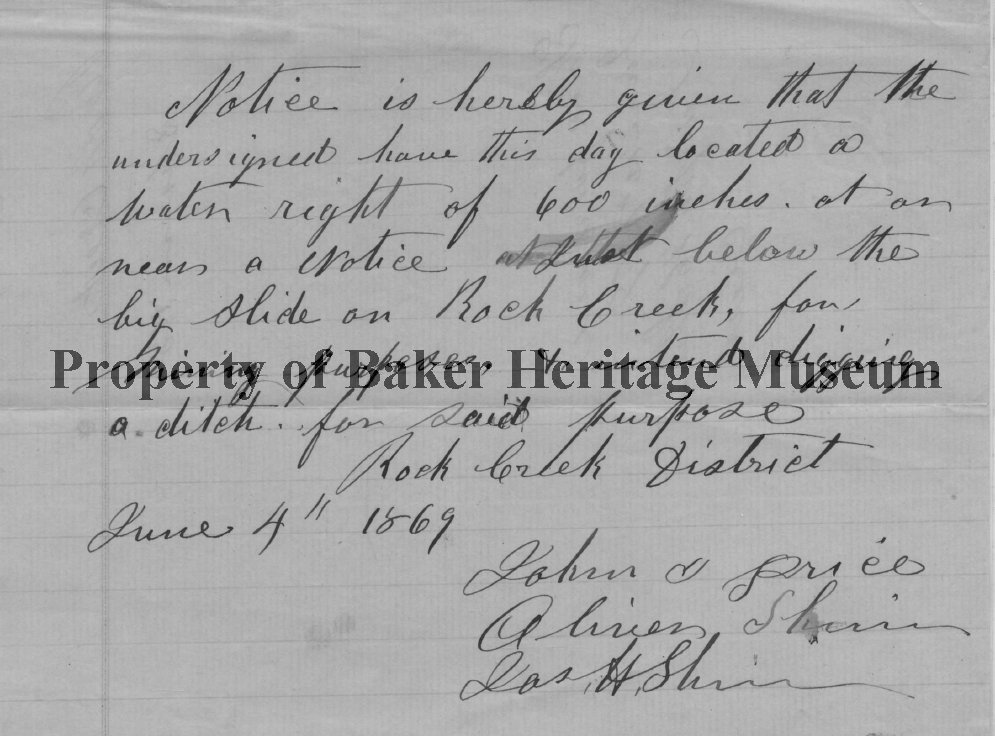 Notice is hereby given that the
undersigned have this day located a
water right of 600 inches. at or
near a Notice at Just below the
big slide on Rock Creek, for
Property of Baker Heritage Museum
Mining purposes, & intend digging
a ditch. for said purpose
Rock Creek District
June 4" 1869
John Price
Oliver Shinn
Jas. H. Shinn